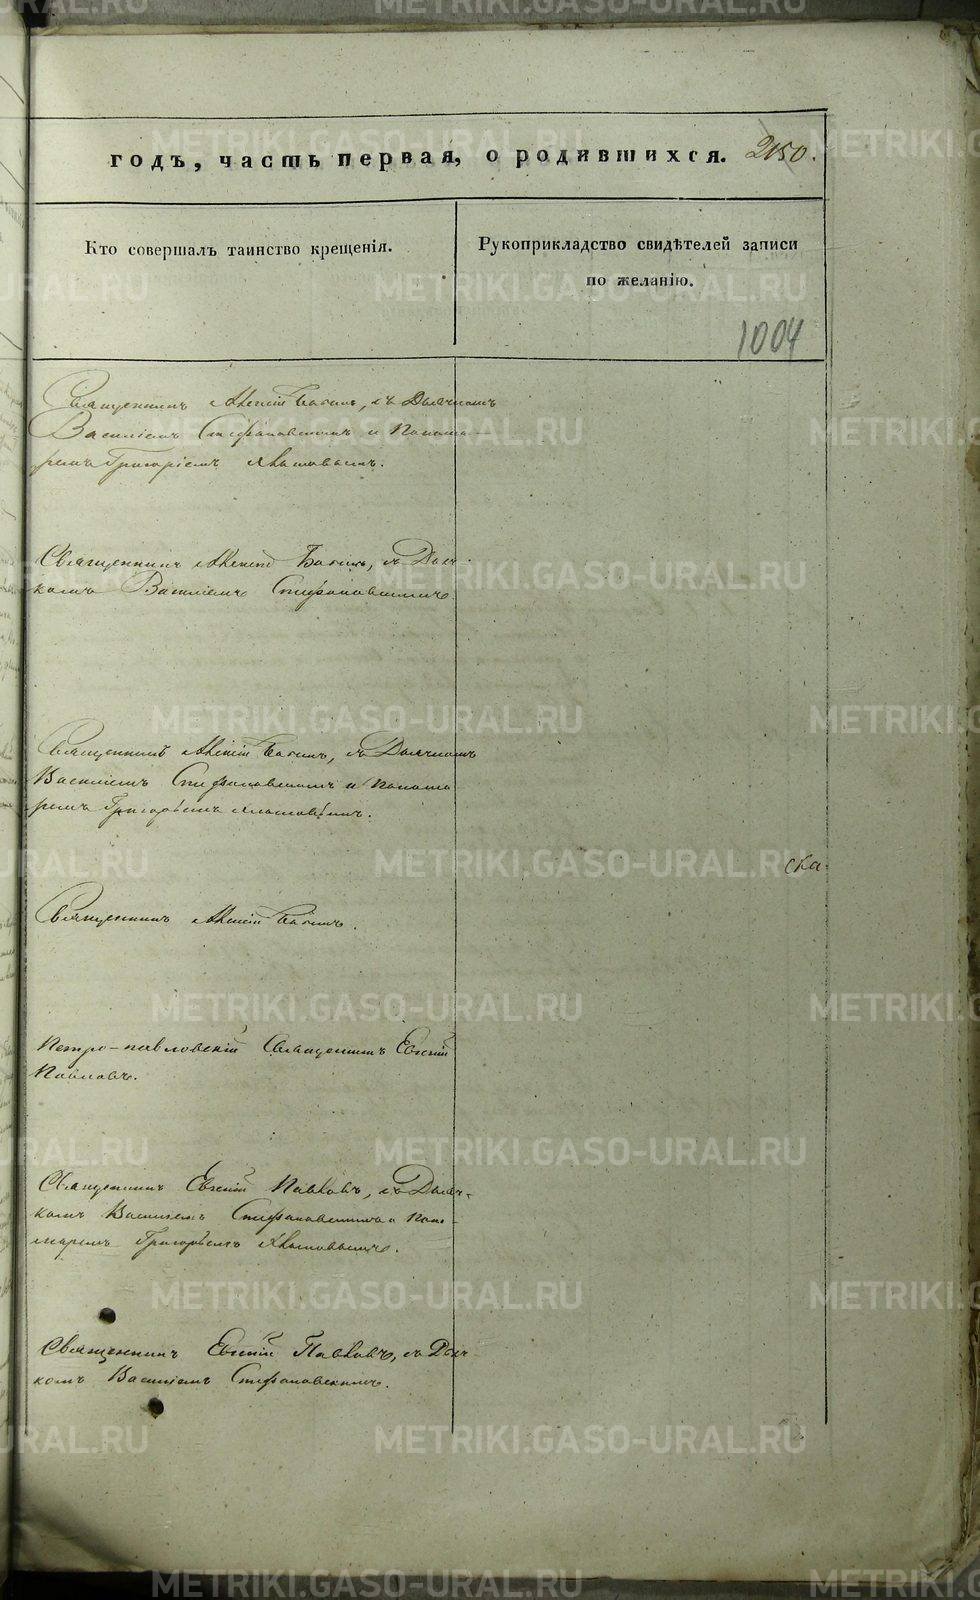 годъ, часть первая, о родившихся. 2150.
Кто совершалъ таинство крещенія.
Рукоприкладство свидѣтелей записи
по желанію.
1004
Священникъ Алексій Бабинъ, съ Дьячкомъ
Василіемъ Стефановскимъ и Понома-
ремъ Григоріемъ
Священникъ Алексій Бабинъ, съ Дьяч-
комъ Василіемъ Стефановскимъ
Священникъ Алексій Бабинъ, съ Дьячкомъ
Василіемъ Стефановскимъ и Понома
ремъ Григоріемъ
ска
Священникъ Алексій Бабинъ.
Петро-павловскій Священникъ Евгеній
Павловъ.
Священникъ Евгеній Павловъ, съ Дьяч-
комъ Василіемъ Стефановскимъ и Поно-
маремъ Григоріемъ
Священникъ Евгеній Павловъ, съ Дьяч-
комъ Василіемъ Стефановскимъ.
METRIKI.GASO-URAL.RU